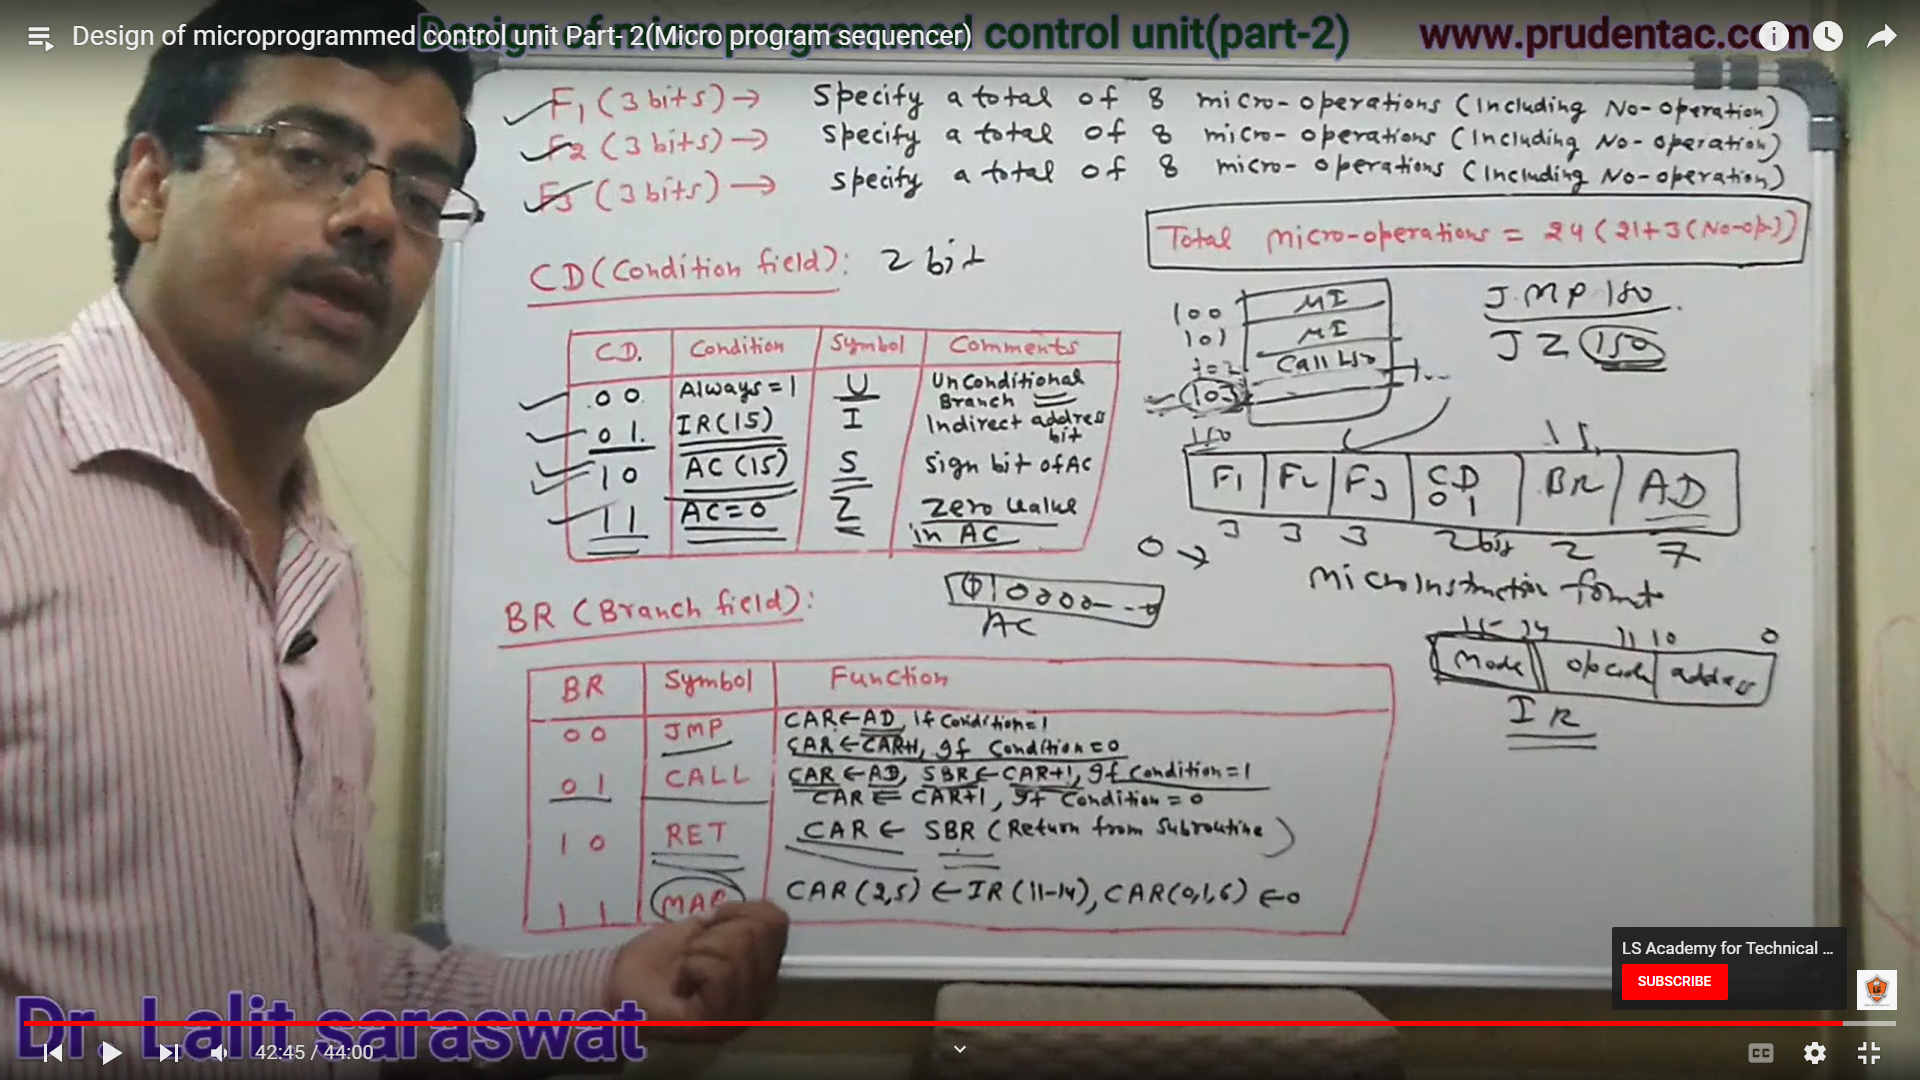 Design of microprogrammed control unit Part- 2(Micro program sequencer)
Design of microprogrammed control unit(part-2)
www.prudentac.com
F1 (3 bits) → Specify a total of 8 micro-operations (Including No-operation)
F2 (3 bits) → Specify a total of 8 micro-operations (Including No-operation)
F3 (3 bits) → Specify a total of 8 micro-operations (Including No-operation)
Total micro-operations = 24 (21+3 (No-op))
CD (Condition field): 2 bit
CD. Condition Symbol Comments
00 Always = 1 U Unconditional Branch
01. IR(15) I Indirect address bit
10 AC(15) S Sign bit of AC
11 AC=0 Z Zero value in AC
100 MI
101 MI
102 Call 150
103
150
JMP 150
JZ 150
15
F1 F2 F3 CD BR AD
01
3 3 3 2 bit 2 7
0 →
Microinstruction format
010000--- 0
AC
15 - 14 11 10 0
Mode opcode address
IR
BR (Branch field):
BR Symbol Function
00 JMP CAR ← AD, If Condition = 1
CAR ← CAR+1, If Condition = 0
01 CALL CAR ← AD, SBR ← CAR+1, If Condition = 1
CAR ← CAR+1, If Condition = 0
10 RET CAR ← SBR (Return from Subroutine)
11 MAP CAR (2,5) ← IR (11-14), CAR (0,1,6) ← 0
LS Academy for Technical ...
SUBSCRIBE
Dr. Lalit saraswat
42:45 / 44:00
CC